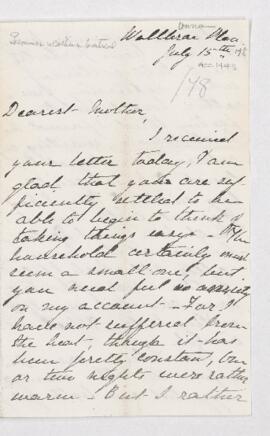 July 15th
148
Dearest Mother,
I received
your letter today, I am
glad that you are suf-
ficiently settled to be
able to begin to think of
taking things easy. The
household certainly must
seem a small one, but
you need feel no anxiety
on my account - For I
have not suffered from
the heat, though it has
been pretty constant, one
or two nights were rather
warm - But I rather